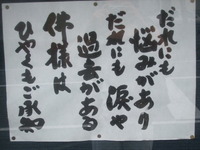 だれにも
悩みがあり
だれにも涙や
過去がある
佛様は
ひゃくもご承知